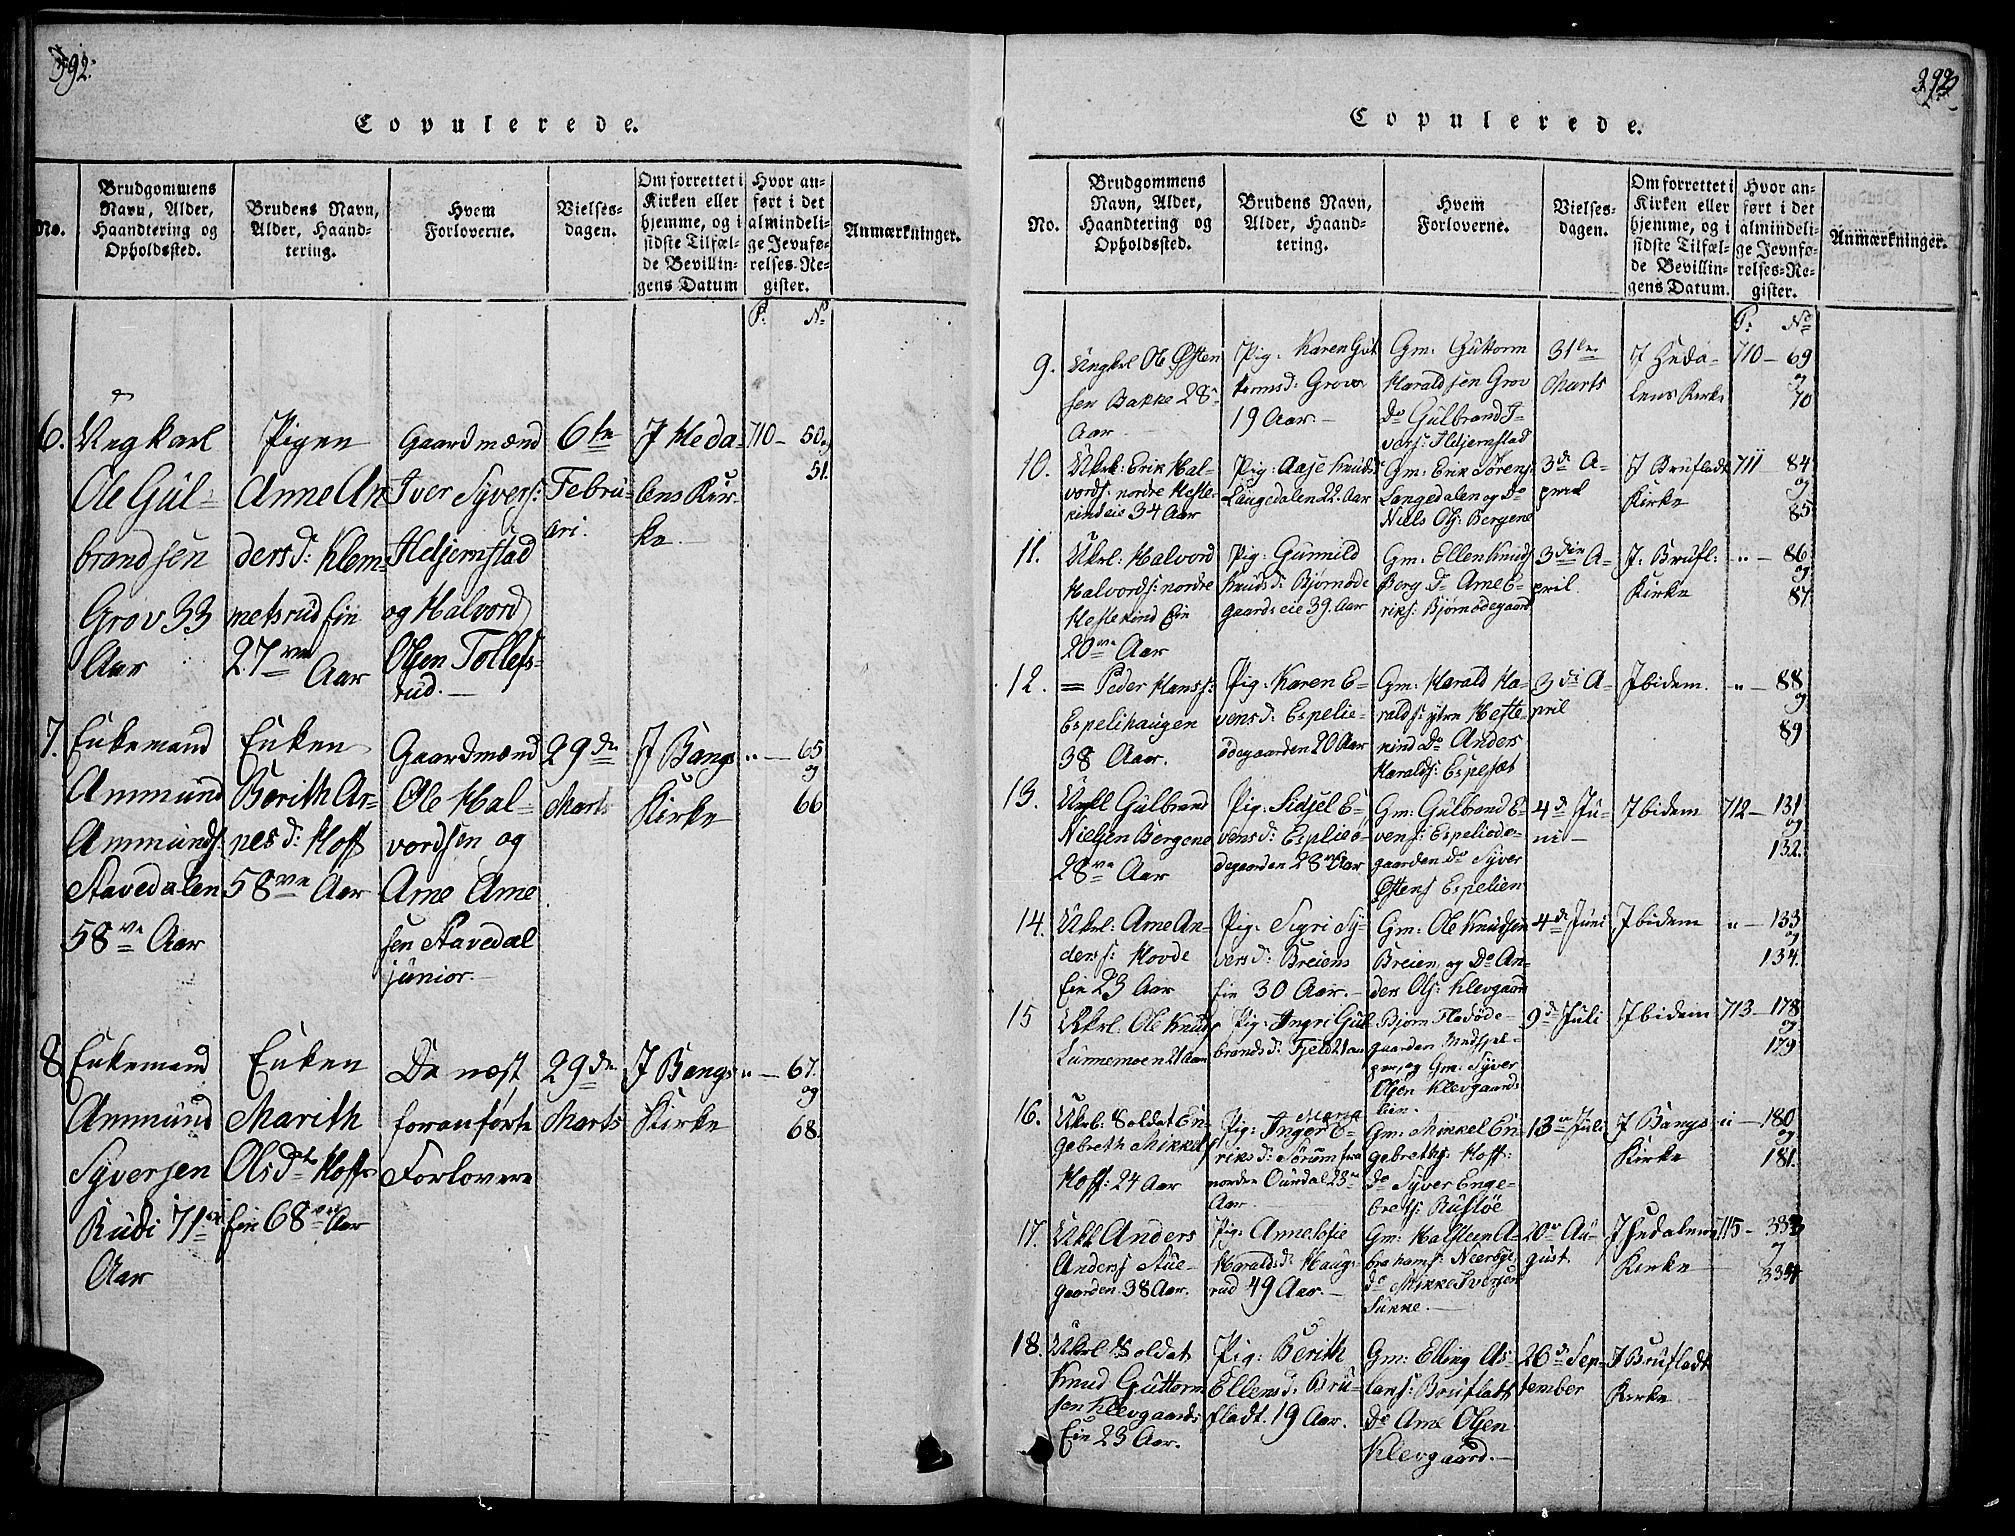 392.
Copulerede.
No.
Brudgommens
Navn, Alder,
Haandtering og
Opholdssted.
Brudens Navn,
Alder, Haand-
tering.
Hvem
Forloverne.
Vielses-
dagen.
Om forrettet i
Kirken eller
hjemme, og i
sidste Tilfæl-
de Bevillin-
gens Datum
Hvor an-
ført i det
almindeli-
ge Jevnfø-
relses-Re-
gister.
Anmærkninger.
P. No
6.
Ungkarl
Ole Gul-
brandsen
Grov 33
Aar
Pigen
Anne An-
dersd: Klem-
metsrud Ein
27 ve Aar
Gaardmænd
Iver Syvers:
Hdjernstad
og Halvord
Olsen Tollefs-
rud.
6te
Febru-
ari.
I Heda-
lens Kir-
ke
710 - 50 og
51.
7.
Enkemand
Ammund
Ammunds:
Stavedalen
58 ve Aar
Enken
Berith Ar-
nes d: Hoff
58 ve Aar
Gaardmænd
Ole Hal-
vordsen og
Arne Arne
sen Stavedal
junior.
29de
Marts
I Bangs
Kirke
" - 65
og
66
8.
Enkemand
Ammund
Syversen
Rudi 71
Aar
Enken
Marith
Olsdt Hoffs
Ein 68 ve Aar
De næst
foranførte
Forlovere
29de
Marts
I Bangs
Kirke
" - 67.
og
68.
Copulerede.
No.
Brudgommens
Navn, Alder,
Haandtering og
Opholdssted.
Brudens Navn,
Alder, Haand-
tering.
Hvem
Forloverne.
Vielses-
dagen.
Om forrettet i
Kirken eller
hjemme, og i
sidste Tilfæl-
de Bevillin-
gens Datum.
Hvor an-
ført i det
almindeli-
ge Jevnfø-
relses-Re-
gister.
Anmærkninger.
P: No
9.
Ungkrl Ole Østen
sen Bakke 28
Aar
Pig: Karen Gut
tormsd: Grov
19 Aar.
Gm: Guttorm
Haraldsen Grov
Do Gulbrand I-
vers: Hdjernstad
31te
Marts
I Heda-
lens Kirke
710 - 69
og
70
10.
Ukrl: Erik Hal-
vords: nordre Hefte-
kind eie 34 Aar
Pig: Aase Knuds
Langedalen 22. Aar
Gm: Erik Sørens
Langedalen og Do
Niels Ols: Bergene
3de A-
pril
I Brufladt
Kirke
711 - 84
og
85
11.
Ukrl: Halvord
Halvords: nordre
Heftekind Ein
20 ve Aar
Pig: Gunnild
Knudsd: Bjørnøde
gaards eie 39. Aar
Gm: Ellen Knuds
Berg Do Arne E-
riks: Bjørnødegaard
3die A-
pril.
I. Brufl:
Kirke
" - 86
og
87.
12.
= Peder Hanss:
Espelihaugen
38 Aar.
Pig: Karen E-
vensd: Espelie-
ødegaarden 20 Aar
Gm: Harald Ha-
ralds: ytre Hefte-
kind Do Anders
Haralds: Espesæt
3die A-
pril
Ibidem.
" - 88
og
89
13.
Ukrl Gulbrand
Nielsen Bergene
28 ve Aar
Pig: Sidsel E-
vensd: Espelieø-
degaarden 28 ve Aar
Gm: Gulbrand E-
vens: Espeliøde-
gaarden Do Syver
Østens Espelien
4de Ju-
ni
Ibidem
712 - 131
og
132.
14.
Ukrl: Arne An-
ders s: Hovde
Ein 23 Aar
Pig: Sigri Sy-
versd: Breiens
Ein 30 Aar.
Gm: Ole Knudsen
Breien, og Do An-
ders Ols: Klevgaard
4de Juni
Ibidem
" - 133
og
134.
15
Ukrl. Ole Knuds
Lunnemoen 21 Aar
Pig: Ingri Gul
brandsd: Fjeld 21 aar
Bjørn Fledøde-
gaarden
og Gm: Syver
Olsen Klevgaards
lien.
9de Juli
Ibidem
713 - 178
og
179
16.
Ukrl: Soldat En-
gebreth Mikkels
Hoff: 24 Aar
Pig: Inger Maria E-
riksd: Sørum fra
nordre Ourdal 23
Aar
Gm: Mikkel En-
gebreths: Hoff:
Do Syver Enge-
breths: Rustøe
13de Juli
I Bangs
Kirke
" - 180
og
181.
17.
Ukrl Anders
Anders Stue-
gaarden. 38 Aar.
Pig: Anne Sofie
Haraldsd: Haugs-
rud 49 Aar.
Gm: Halsteen A-
brahams: Neerbye
Do Mikkel Iversen
Sukke.
20de Au-
gust
I Hedalens
Kirke
715 - 333
og
334
18.
Ukrl Soldat
Knud Guttorm
sen Klevgaards
Ein 23 Aar.
Pig: Berith
Ellensd: Bru-
fladt. 19 Aar.
Gm: Elling As-
lans: Brufladt
Do Arne Olsen
Klevgaard.
26de Sep-
tember
I Brufladt
Kirke